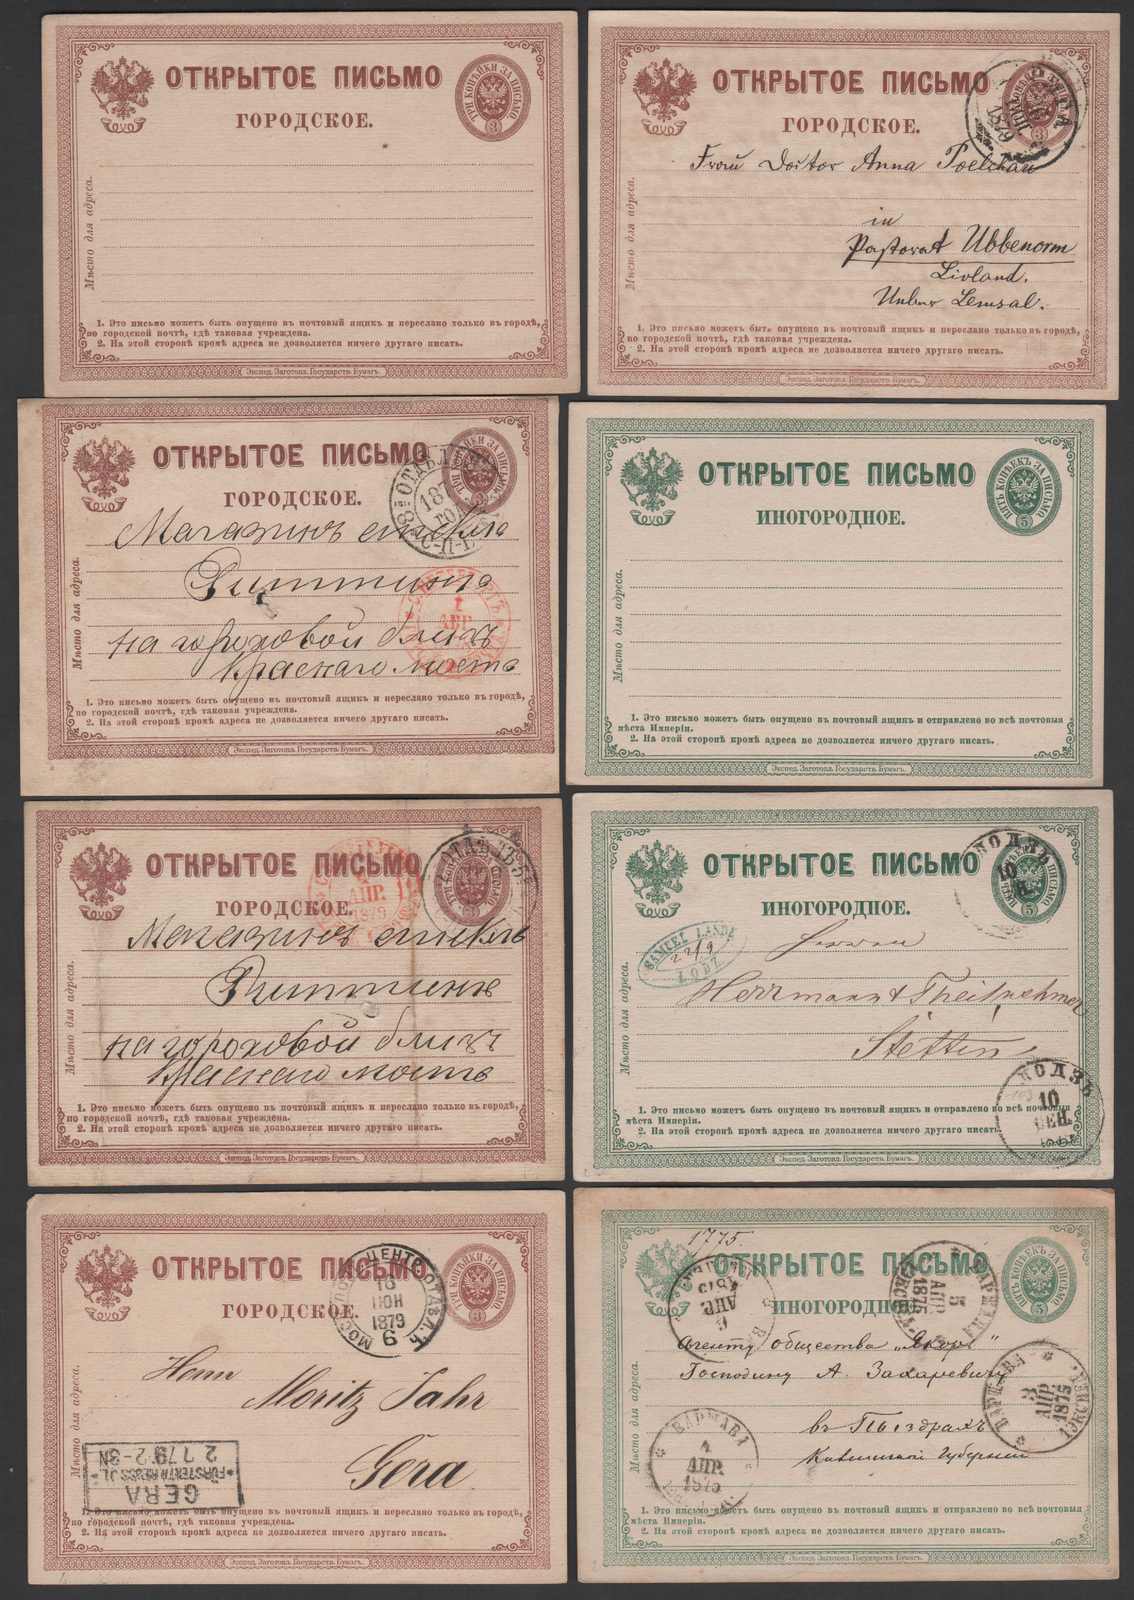 ОТКРЫТОЕ ПИСЬМО
ГОРОДСКОЕ.
ТРИ КОПѢЙКИ ЗА ПИСЬМО
3
Мѣсто для адреса.
1. Это письмо можетъ быть опущено въ почтовый ящикъ и переслано только въ городѣ,
по городской почтѣ, гдѣ таковая учреждена.
2. На этой сторонѣ кромѣ адреса не дозволяется ничего другаго писать.
Экспед. Заготовл. Государств. Бумагъ.
ОТКРЫТОЕ ПИСЬМО
ГОРОДСКОЕ.
3
1879
Frau Doctor Anna Poelchau
in
Pastorat Ubbenorm
Livland.
Unber Lemsal.
Мѣсто для адреса.
1. Это письмо можетъ быть опущено въ почтовый ящикъ и переслано только въ городѣ,
по городской почтѣ, гдѣ таковая учреждена.
2. На этой сторонѣ кромѣ адреса не дозволяется ничего другаго писать.
Экспед. Заготовл. Государств. Бумагъ.
ОТКРЫТОЕ ПИСЬМО
ГОРОДСКОЕ.
3
АПР.
Магазинъ
на гороховой близъ
Краснаго моста
Мѣсто для адреса.
1. Это письмо можетъ быть опущено въ почтовый ящикъ и переслано только въ городѣ,
по городской почтѣ, гдѣ таковая учреждена.
2. На этой сторонѣ кромѣ адреса не дозволяется ничего другаго писать.
Экспед. Заготовл. Государств. Бумагъ.
ОТКРЫТОЕ ПИСЬМО
ИНОГОРОДНОЕ.
ПЯТЬ КОПѢЕКЪ ЗА ПИСЬМО
5
Мѣсто для адреса.
1. Это письмо можетъ быть опущено въ почтовый ящикъ и отправлено во всѣ почтовыя
мѣста Имперіи.
2. На этой сторонѣ кромѣ адреса не дозволяется ничего другаго писать.
Экспед. Заготовл. Государств. Бумагъ.
ОТКРЫТОЕ ПИСЬМО
ГОРОДСКОЕ.
АПР.
1879
Магазинъ
на гороховой близъ
Краснаго моста
Мѣсто для адреса.
1. Это письмо можетъ быть опущено въ почтовый ящикъ и переслано только въ городѣ,
по городской почтѣ, гдѣ таковая учреждена.
2. На этой сторонѣ кромѣ адреса не дозволяется ничего другаго писать.
Экспед. Заготовл. Государств. Бумагъ.
ОТКРЫТОЕ ПИСЬМО
ИНОГОРОДНОЕ.
5
10
SAMUEL LANDA
22/9
LODZ
Herrmann & Theilnehmer
Stettin
ЛОДЗЬ
10
СЕН.
Мѣсто для адреса.
1. Это письмо можетъ быть опущено въ почтовый ящикъ и отправлено во всѣ почтовыя
мѣста Имперіи.
2. На этой сторонѣ кромѣ адреса не дозволяется ничего другаго писать.
Экспед. Заготовл. Государств. Бумагъ.
ОТКРЫТОЕ ПИСЬМО
ГОРОДСКОЕ.
ТРИ КОПѢЙКИ ЗА ПИСЬМО
3
1879
9
Herrn
Moritz Jahr
Gera
GERA
2 7 79 2-3N
Мѣсто для адреса.
1. Это письмо можетъ быть опущено въ почтовый ящикъ и переслано только въ городѣ,
по городской почтѣ, гдѣ таковая учреждена.
2. На этой сторонѣ кромѣ адреса не дозволяется ничего другаго писать.
Экспед. Заготовл. Государств. Бумагъ.
1775.
ОТКРЫТОЕ ПИСЬМО
ИНОГОРОДНОЕ.
ПЯТЬ КОПѢЕКЪ ЗА ПИСЬМО
5
АПР.
1875
Агенту общества „Якорь“
Господину А. Захаревичу
въ Пыздрахъ
Губерніи
ВАРШАВА
3
АПР.
1875
ВАРШАВА
АПР.
1875
Мѣсто для адреса.
1. Это письмо можетъ быть опущено въ почтовый ящикъ и отправлено во всѣ почтовыя
мѣста Имперіи.
2. На этой сторонѣ кромѣ адреса не дозволяется ничего другаго писать.
Экспед. Заготовл. Государств. Бумагъ.